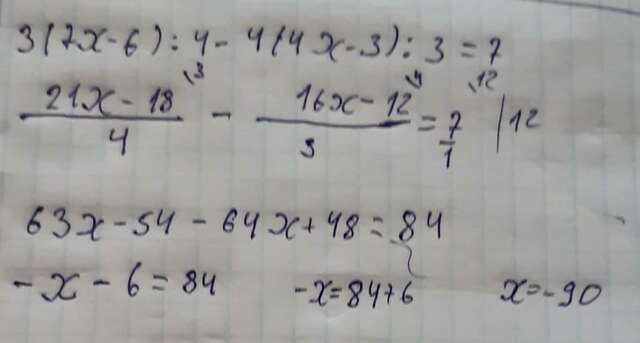 3(7x-6):4-4(4x-3):3=7
\3 \4 \12
21x-18/4 - 16x-12/3 = 7/1 |12
63x-54-64x+48=84
-x-6=84 -x=84+6 x=-90